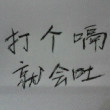 打个嗝
就会吐